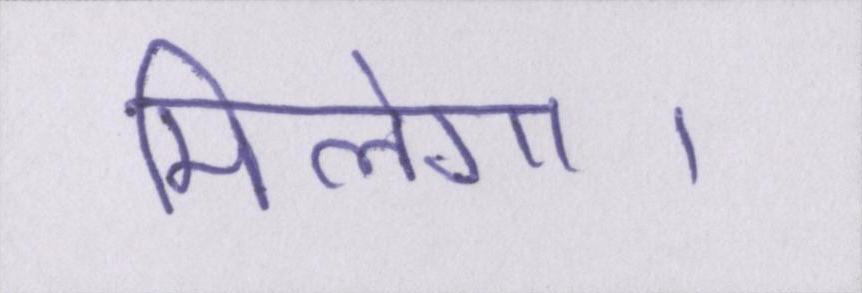 मिलेगा।